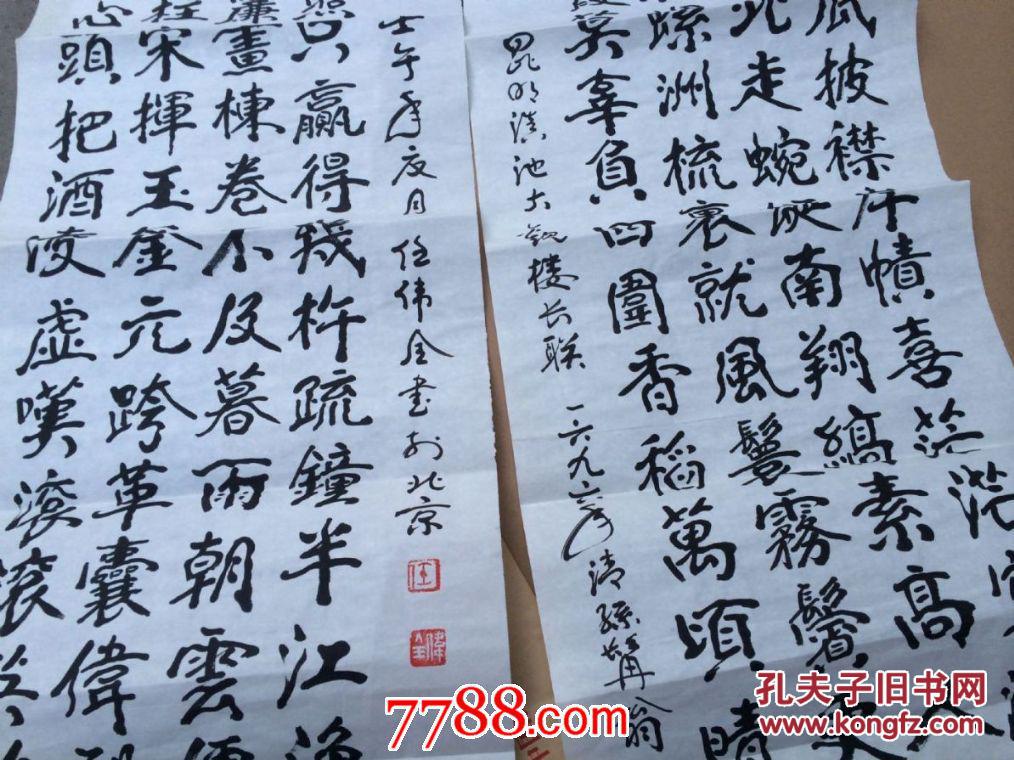 披襟岸幘喜茫茫空
北走蜿蜒南翔縞素高人
螺洲梳裹就風鬟霧鬢更
莫辜負四圍香稻萬頃晴
昆明滇池大觀楼长联 一六九六年清孫髯翁
心頭把酒凌虚嘆滾滾英
柱宋揮玉釜元跨革囊偉烈
簾畫棟卷不及暮雨朝雲便
只贏得幾杵疏鐘半江漁
壬午年夏月任伟全书於北京
7788.com
孔夫子旧书网
www.kongfz.com